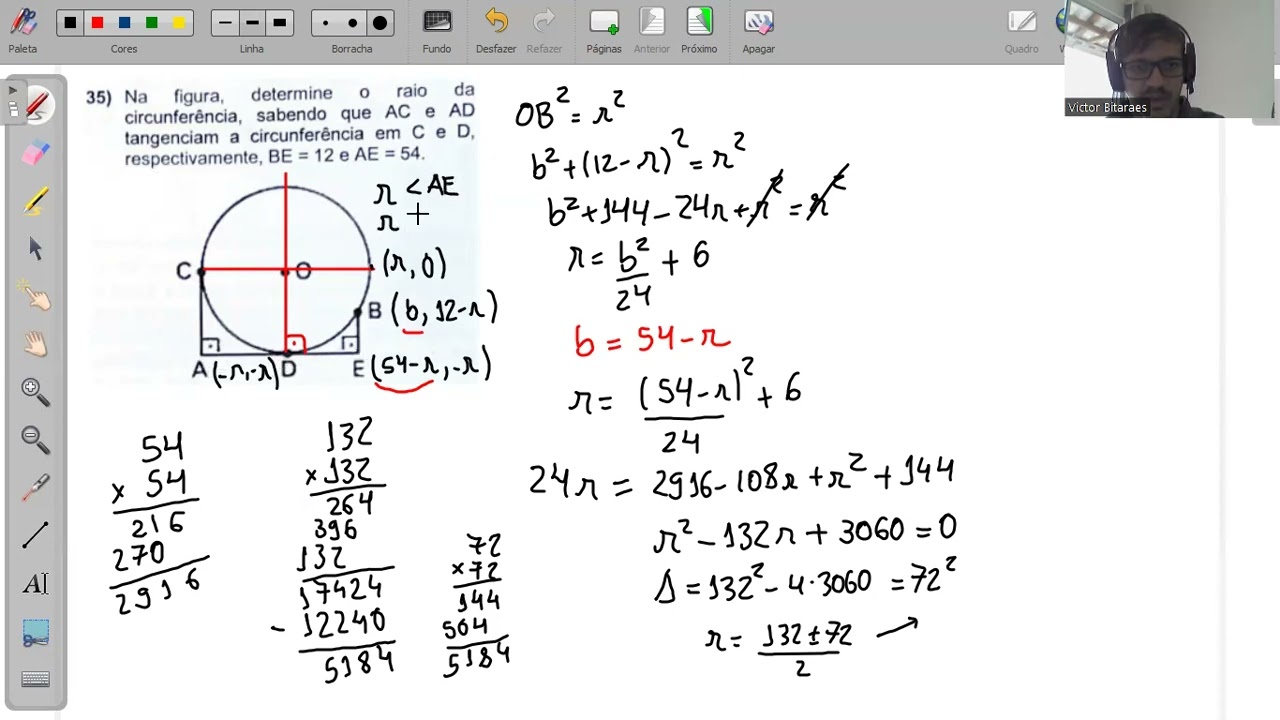 Paleta
Cores
Linha
Borracha
Fundo
Desfazer
Refazer
Páginas
Anterior
Próximo
Apagar
Quadro
Victor Bitaraes
35) Na figura, determine o raio da
circunferência, sabendo que AC e AD
tangenciam a circunferência em C e D,
respectivamente, BE = 12 e AE = 54.
r < AE
r
C
O
(r, 0)
B (b, 12-r)
A (-r,-r) D
E (54-r, -r)
OB² = r²
b² + (12-r)² = r²
b² + 144 - 24r + r² = r²
r = b²/24 + 6
b = 54-r
r = (54-r)²/24 + 6
24r = 2916 - 108r + r² + 144
r² - 132r + 3060 = 0
Δ = 132² - 4·3060 = 72²
r = 132±72/2 →
54
× 54
216
270
2916
132
× 132
264
396
132
17424
- 12240
5184
72
×72
144
504
5184
AI